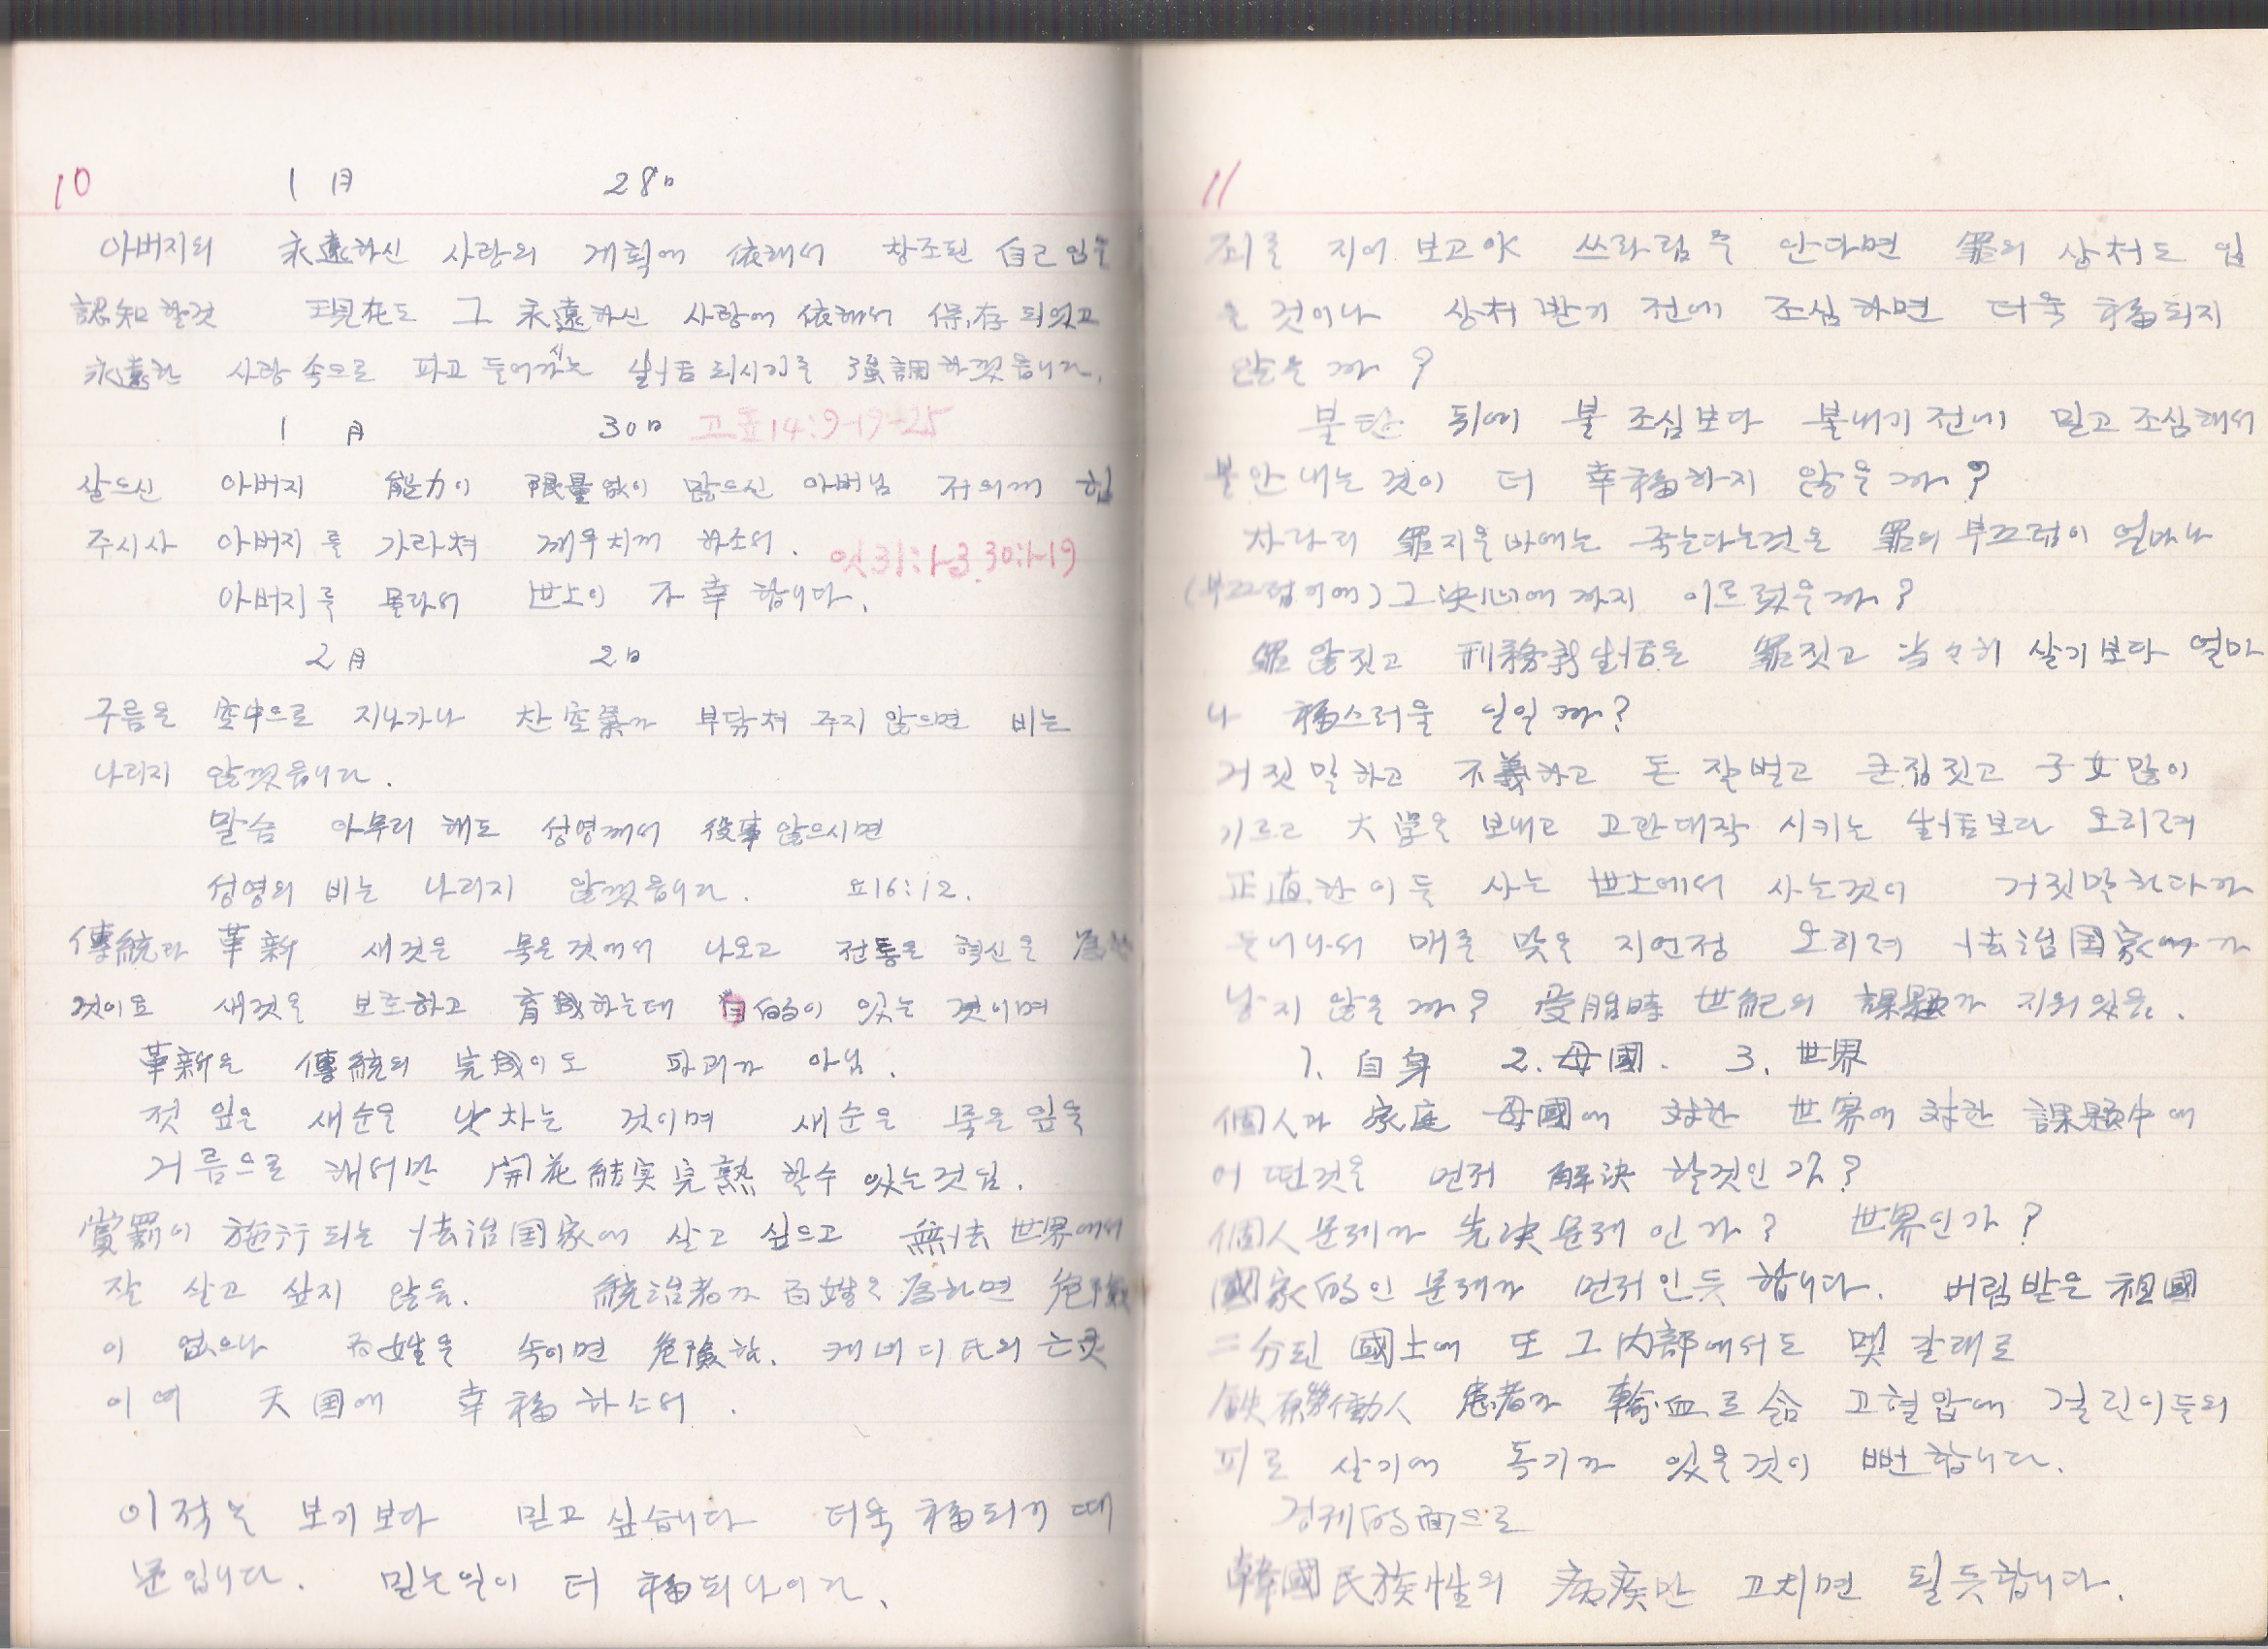 10 1月 28日
아버지의 永遠하신 사랑의 계획에 依해서 창조된 自己임을
認知할것 現在도 그 永遠하신 사랑에 依해서 保存되었고
永遠한 사랑속으로 파고 들어가시는 生活되시기를 强調하겠읍니다.
1月 30日 고전14:9-19-25
살으신 아버지 能力이 限量없이 많으신 아버님 저의께 힘
주시사 아버지를 가라쳐 깨우치게 하소서. 잇31:1-3. 30:1-19
아버지를 몰라서 世上이 不幸합니다.
2月 2日
구름은 空中으로 지나가나 찬 空氣가 부닥쳐 주지 않으면 비는
나리지 않겠읍니다.
말슴 아무리 해도 성영께서 役事않으시면
성영의 비는 나리지 않겠읍니다. 요16:12.
傳統과 革新 새것은 묵은것에서 나오고 전통은 혁신을 爲한
것이요 새것을 보호하고 育成하는데 目的이 있는 것이며
革新은 傳統의 完成이도 파괴가 아님.
젓잎은 새순을 낫차는 것이며 새순은 묵은잎을
거름으로 해서만 開花結実完熟 할수 있는것임.
賞罰이 施行되는 法治国家에 살고 싶으고 無法世界에서
잘 살고 싶지 않음. 統治者가 百姓을 爲하면 危險
이 없으나 百姓을 속이면 危險함. 캐네디氏의 亡灵
이여 天国에 幸福하소서.
이적는 보기보다 믿고싶습니다 더욱 福되기 때
문입니다. 믿는일이 더 福되나이다.
11
죄를 지어 보고야 쓰라림을 안다면 罪의 상처도 입
을것이나 상처받기 전에 조심하면 더욱 福되지
않을까?
불탄 뒤에 불조심보다 불내기전에 믿고조심해서
불안내는것이 더 幸福하지 않을까?
차라리 罪지을바에는 죽는다는것은 罪의 부끄럼이 얼마나
(부끄럼이에)그決心에까지 이르렀을까?
罪않짓고 刑務所生活은 罪짓고 当々히 살기보다 얼마
나 福스러울 일일까?
거짓말하고 不義하고 돈 잘벌고 큰집짓고 子女많이
기르고 大學을 보내고 고관대작 시키는 生活보다 오히려
正直한이들 사는 世上에서 사는것이 거짓말하다가
들어나서 매를 맞을지언정 오히려 法治国家에가
낳지 않을까? 受胎時 世紀의 課題가 지워있음.
1. 自身 2. 母國. 3. 世界
個人과 家庭 母國에 対한 世界에 対한 課題中에
어떤것을 먼저 解決 할것인가?
個人문제가 先決문제인가? 世界인가?
國家的인 문제가 먼저인듯 합니다. 버림받은 祖國
二分된 國土에 또 그 內部에서도 몇 갈래로
患者가 輸血로 고혈압에 걸린이들의
피로 살기에 독기가 있을것이 뻔합니다.
경제的面으로
韓國民族性의 病疾만 고치면 될듯합니다.